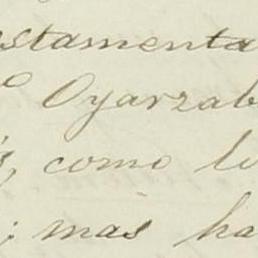 stamenta
Oyarzab
, como lo
; mas ha